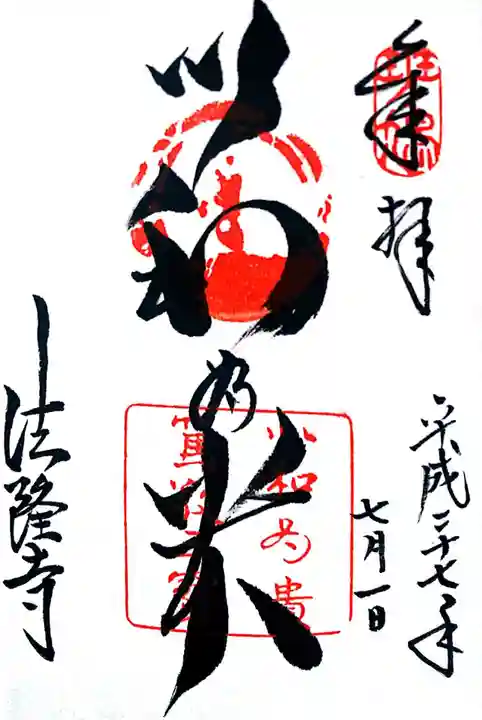 奉拝
平成二十七年
七月一日
以和為貴
以和為貴
篤敬三寶
法隆寺